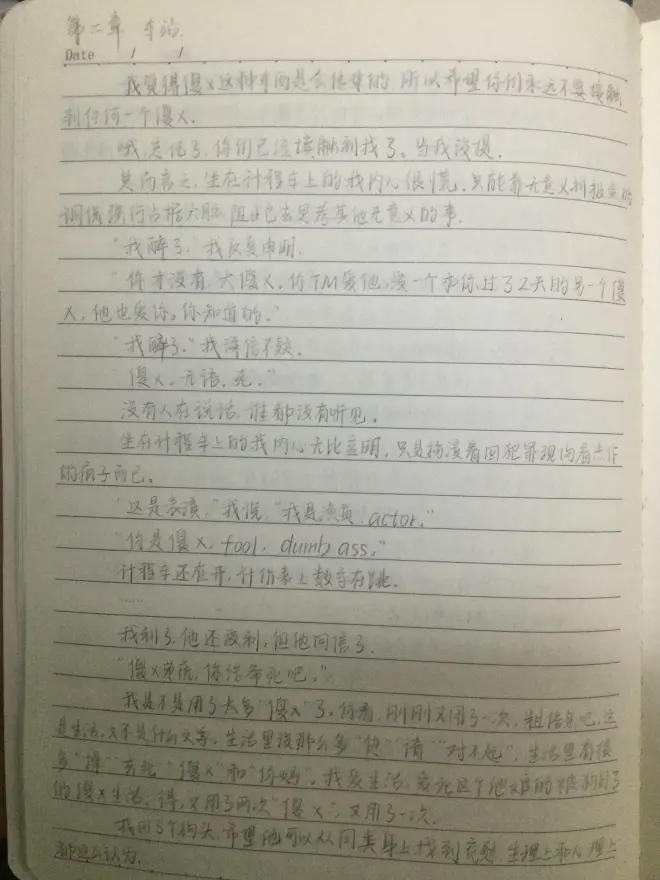 第二章 车站
Date / /
我觉得傻x这种东西是会传染的,所以希望你们永远不要接触
到任何一个傻x。
哦,忘记了,你们已经接触到我了。当我没提。
总而言之,坐在计程车上的我内心很慌,只能靠无意义到极点的
词强行占据大脑,阻止它去思考其他无意义的事。
“我醉了。”我反复申明。
“你才没有,大傻x,你TM爱他,爱一个和你过了2天的另一个傻
x,他也爱你,你知道的。”
“我醉了。”我深信不疑。
“傻x,无语,死。”
没有人在说话,谁都没有听见。
坐在计程车上的我内心无比空明,只是个看回犯罪现场
的疯子而已。
“这是表演,”我说,“我是演员,actor。”
“你是傻x,fool,dumb ass。”
计程车还在开,计价表上数字在跳。
……
我到了,他还没到,但他回信了。
“傻x,你给爷死吧。”
我是不是用了太多“傻x”了,你看,刚刚又用了一次,粗俗吧,这
是生活,又不是什么文学,生活里没那么多“您”“请”“对不起”,生活里有很
多“滚”“去死”“傻x”和“你妈”。我爱生活,爱死这个他
的傻x生活,得,又用了两次“傻x”,又用了一次。
我回了个狗头,希望他可以从同类身上找到,生理上和心理上
都这么认为。